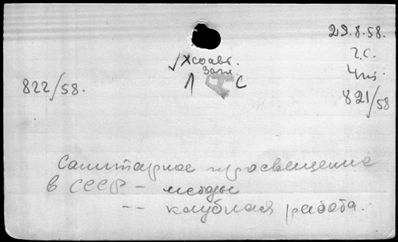 29.8.58.
√Xсоавт.
Загл.
1 С
г.с.
4 п.
822/58.
821/58
Санитарное просвещение
в СССР – методы
-- клубная работа.